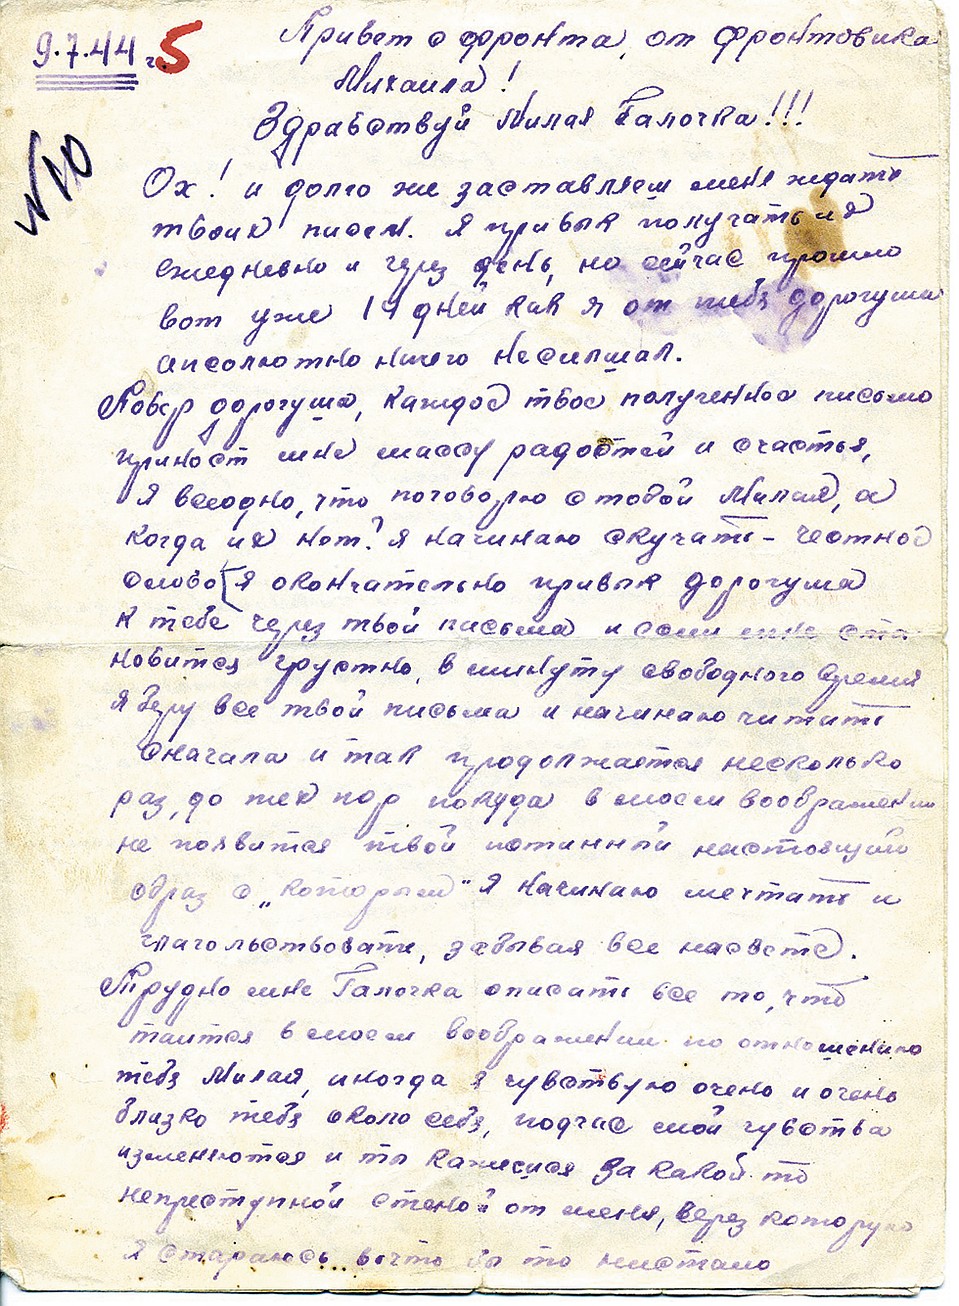 9.7.44 г. 5
Привет с фронта, от фронтовика
Михаила!
Здравствуй Милая Галочка!!!
№10
Ох! и долго же заставляем меня ждать
твоих писем. Я привык получать их
ежедневно и через день, но сейчас прошло
вот уже 19 дней как я от тебя дорогуша
апсолютно ничего неслышал.
Повер дорогуша, каждое твое полученное письмо
приност мне массу радостей и счастья,
я всеодно, что поговорю с тобой Милая, а
когда их нет? я начинаю скучать - честное
слово я окончательно привык дорогуша
к тебе через твои письма и если мне ста
новится грустно, в минуту свободного время
я беру все твои письма и начинаю читать
сначала и так продолжается несколько
раз, до тех пор покуда в моем воображении
не появится твой истинный настоящий
образ с „которым" я начинаю мечтать и
глагольствовать, забывая все насвете.
Трудно мне Галочка описать все то, что
таится в моем воображении по отношению
тебя Милая, иногда я чувствую очень и очень
близко тебя около себя, подчас мои чувства
изменяются и ты кажешся за какой-то
непреступной стеной от меня, через которую
я стараюсь вочто бы то нистало